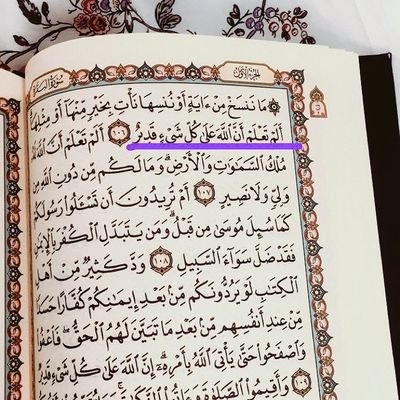 سورة البقرة
الجزء الأول
مَا نَنسَخْ مِنْ ءَايَةٍ أَوْ نُنسِهَا نَأْتِ بِخَيْرٍ مِّنْهَا أَوْ مِثْلِهَا
أَلَمْ تَعْلَمْ أَنَّ ٱللَّهَ عَلَىٰ كُلِّ شَىْءٍ قَدِيرٌ ١٠٦ أَلَمْ تَعْلَمْ أَنَّ ٱللَّهَ لَهُ
مُلْكُ ٱلسَّمَٰوَٰتِ وَٱلْأَرْضِ وَمَا لَكُم مِّن دُونِ ٱللَّهِ مِن
وَلِىٍّ وَلَا نَصِيرٍ ١٠٧ أَمْ تُرِيدُونَ أَن تَسْـَٔلُوا۟ رَسُولَكُمْ
كَمَا سُئِلَ مُوسَىٰ مِن قَبْلُ وَمَن يَتَبَدَّلِ ٱلْكُفْرَ بِٱلْإِيمَٰنِ
فَقَدْ ضَلَّ سَوَآءَ ٱلسَّبِيلِ ١٠٨ وَدَّ كَثِيرٌ مِّنْ أَهْلِ
ٱلْكِتَٰبِ لَوْ يَرُدُّونَكُم مِّنۢ بَعْدِ إِيمَٰنِكُمْ كُفَّارًا حَسَدًا
مِّنْ عِندِ أَنفُسِهِم مِّنۢ بَعْدِ مَا تَبَيَّنَ لَهُمُ ٱلْحَقُّ فَٱعْفُوا۟
وَٱصْفَحُوا۟ حَتَّىٰ يَأْتِىَ ٱللَّهُ بِأَمْرِهِۦٓ إِنَّ ٱللَّهَ عَلَىٰ كُلِّ شَىْءٍ قَدِيرٌ
١٠٩ وَأَقِيمُوا۟ ٱلصَّلَوٰةَ وَءَاتُوا۟ ٱلزَّكَوٰةَ وَمَا